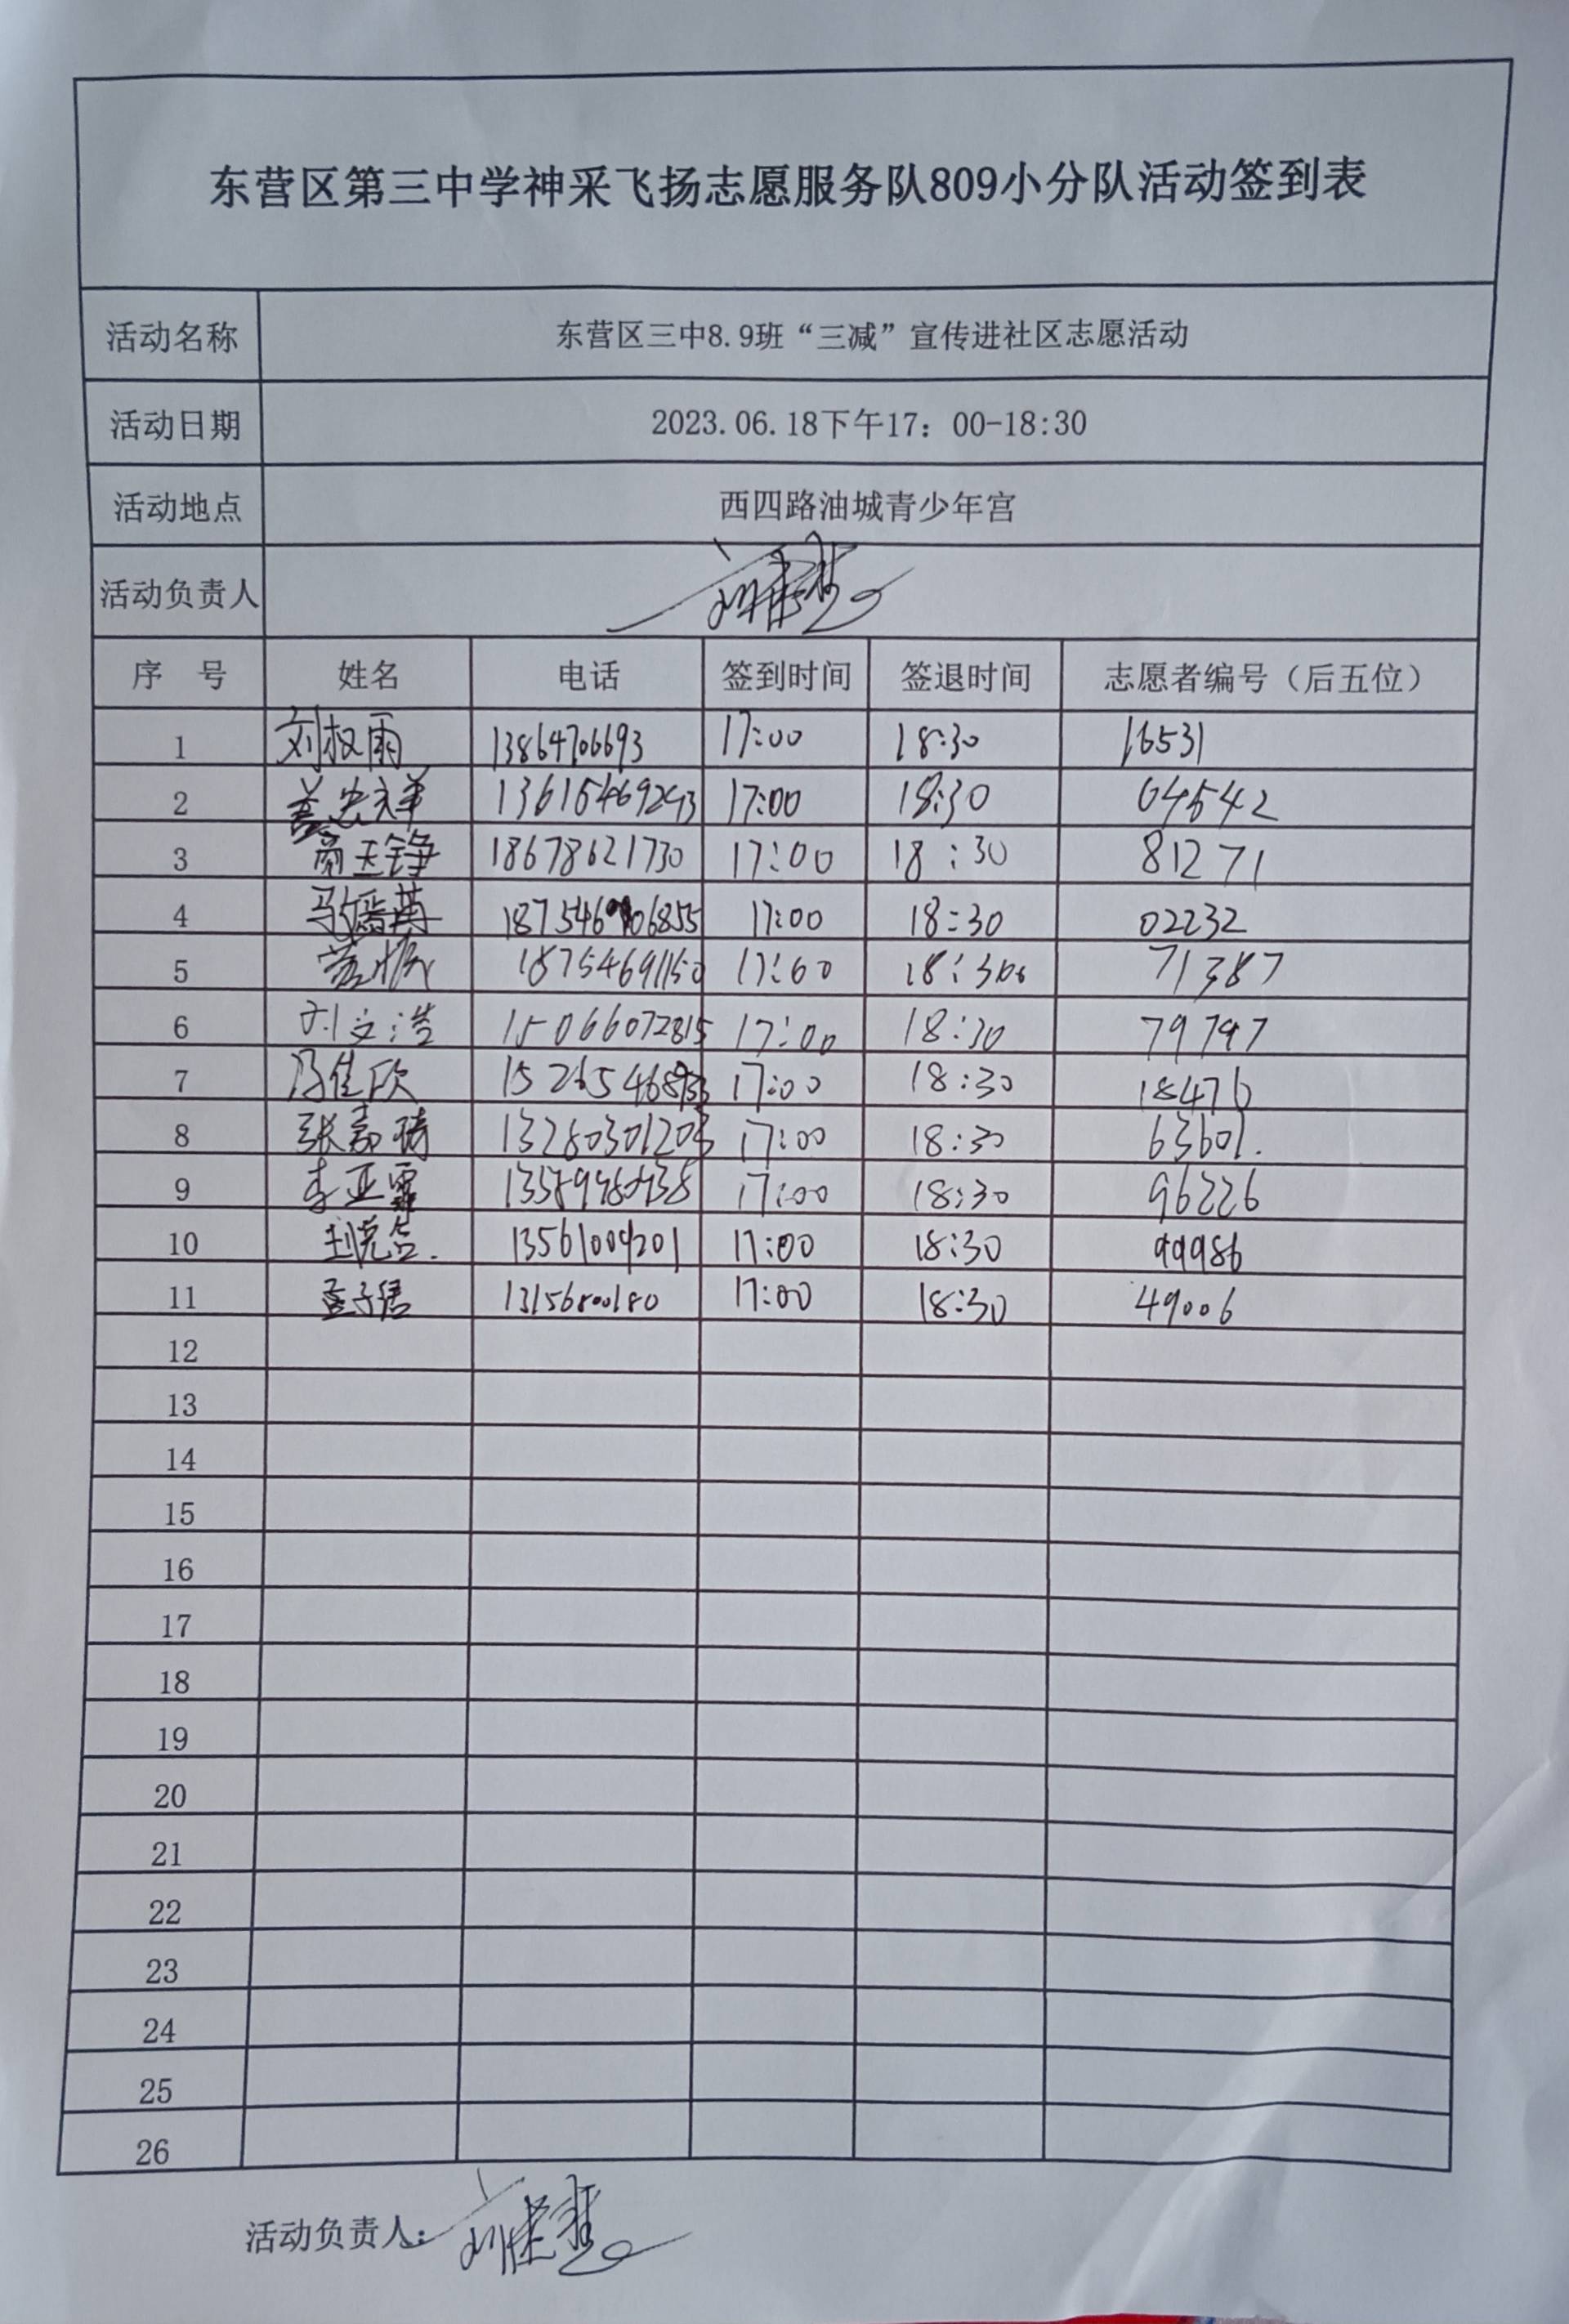 东营区第三中学神采飞扬志愿服务队809小分队活动签到表
活动名称 东营区三中8.9班“三减”宣传进社区志愿活动
活动日期 2023.06.18下午17：00-18:30
活动地点 西四路油城青少年宫
活动负责人
序 号 姓名 电话 签到时间 签退时间 志愿者编号（后五位）
1 刘权雨 13864706693 17:00 18:30 16531
2 17:00 18:30 04542
3 18678621730 17:00 18:30 81271
4 17:00 18:30 02232
5 18754691150 17:00 71387
6 刘文浩 15066072815 17:00 18:30 79797
7 冯佳欣 17:00 18:30 18476
8 13280301203 17:00 18:30 63601.
9 李亚霏 17:00 18:30 96226
10 13561004201 17:00 18:30 99986
11 孟子居 13156800180 17:00 18:30 49006
12
13
14
15
16
17
18
19
20
21
22
23
24
25
26
活动负责人：